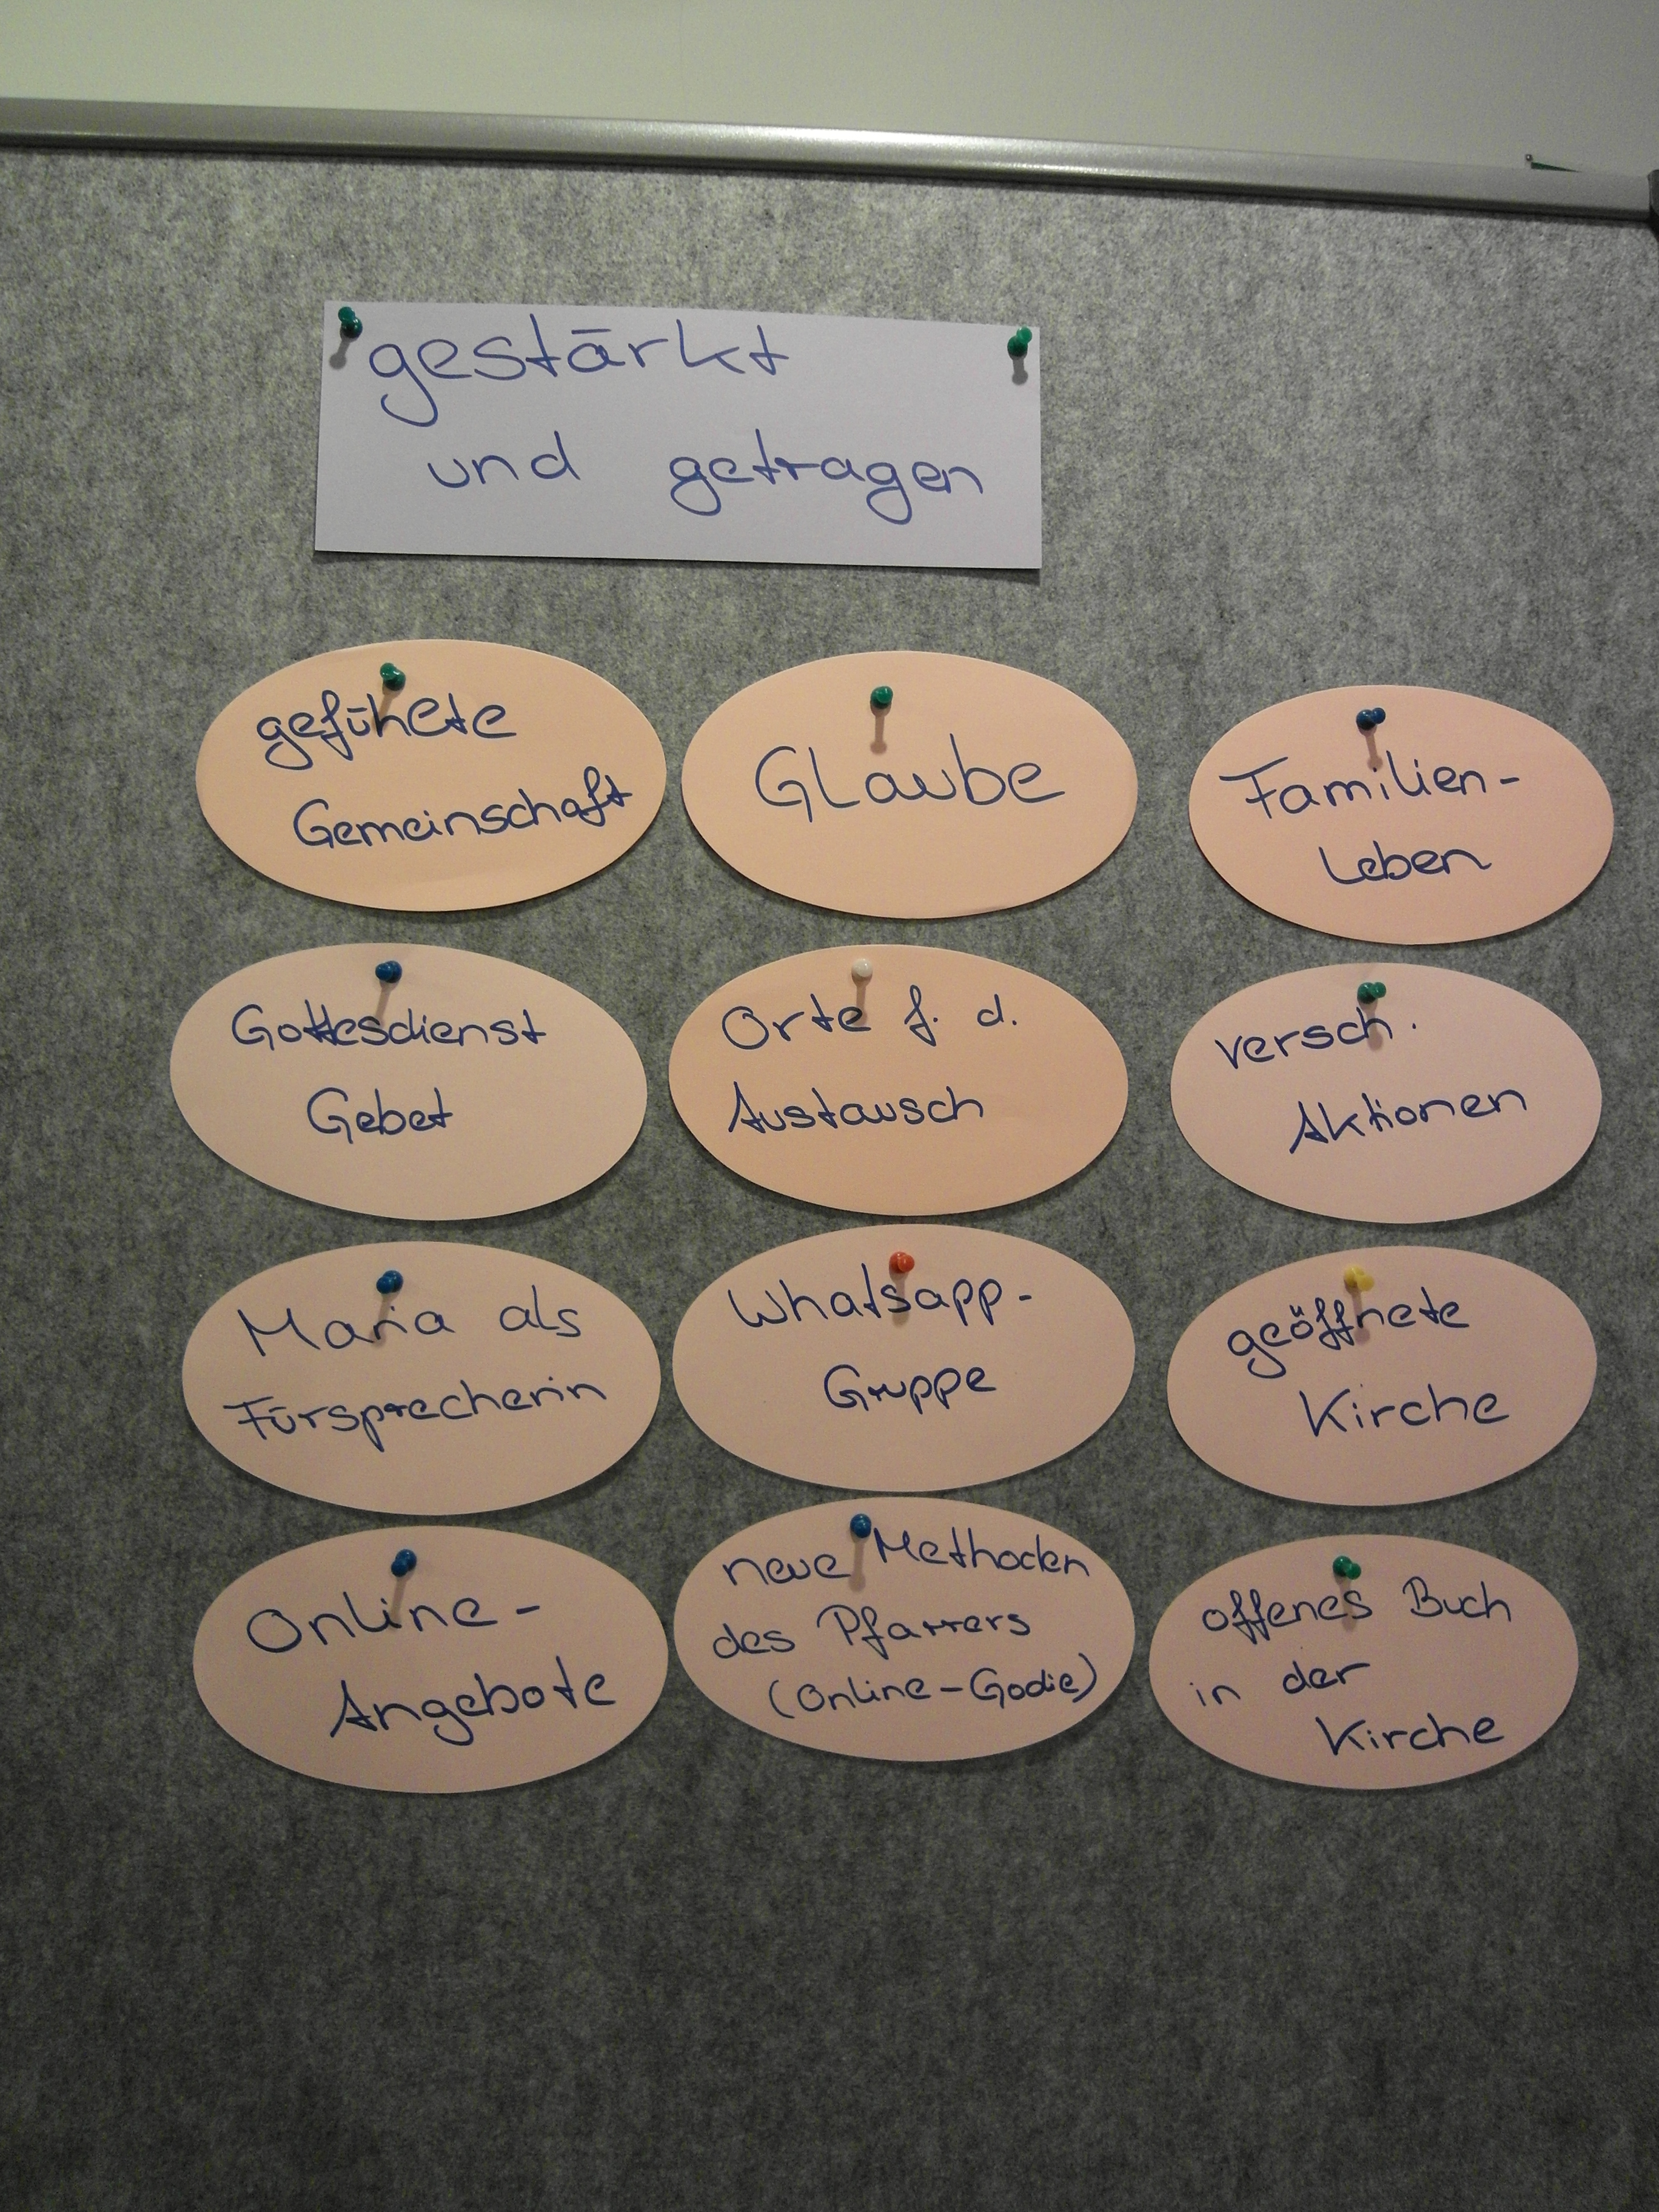 gestärkt
und getragen
gefühlte
Gemeinschaft
Glaube
Familien-
Leben
Gottesdienst
Gebet
Orte f. d.
Austausch
versch.
Aktionen
Maria als
Fürsprecherin
Whatsapp-
Gruppe
geöffnete
Kirche
Online-
Angebote
neue Methoden
des Pfarrers
(Online-Godie)
offenes Buch
in der
Kirche